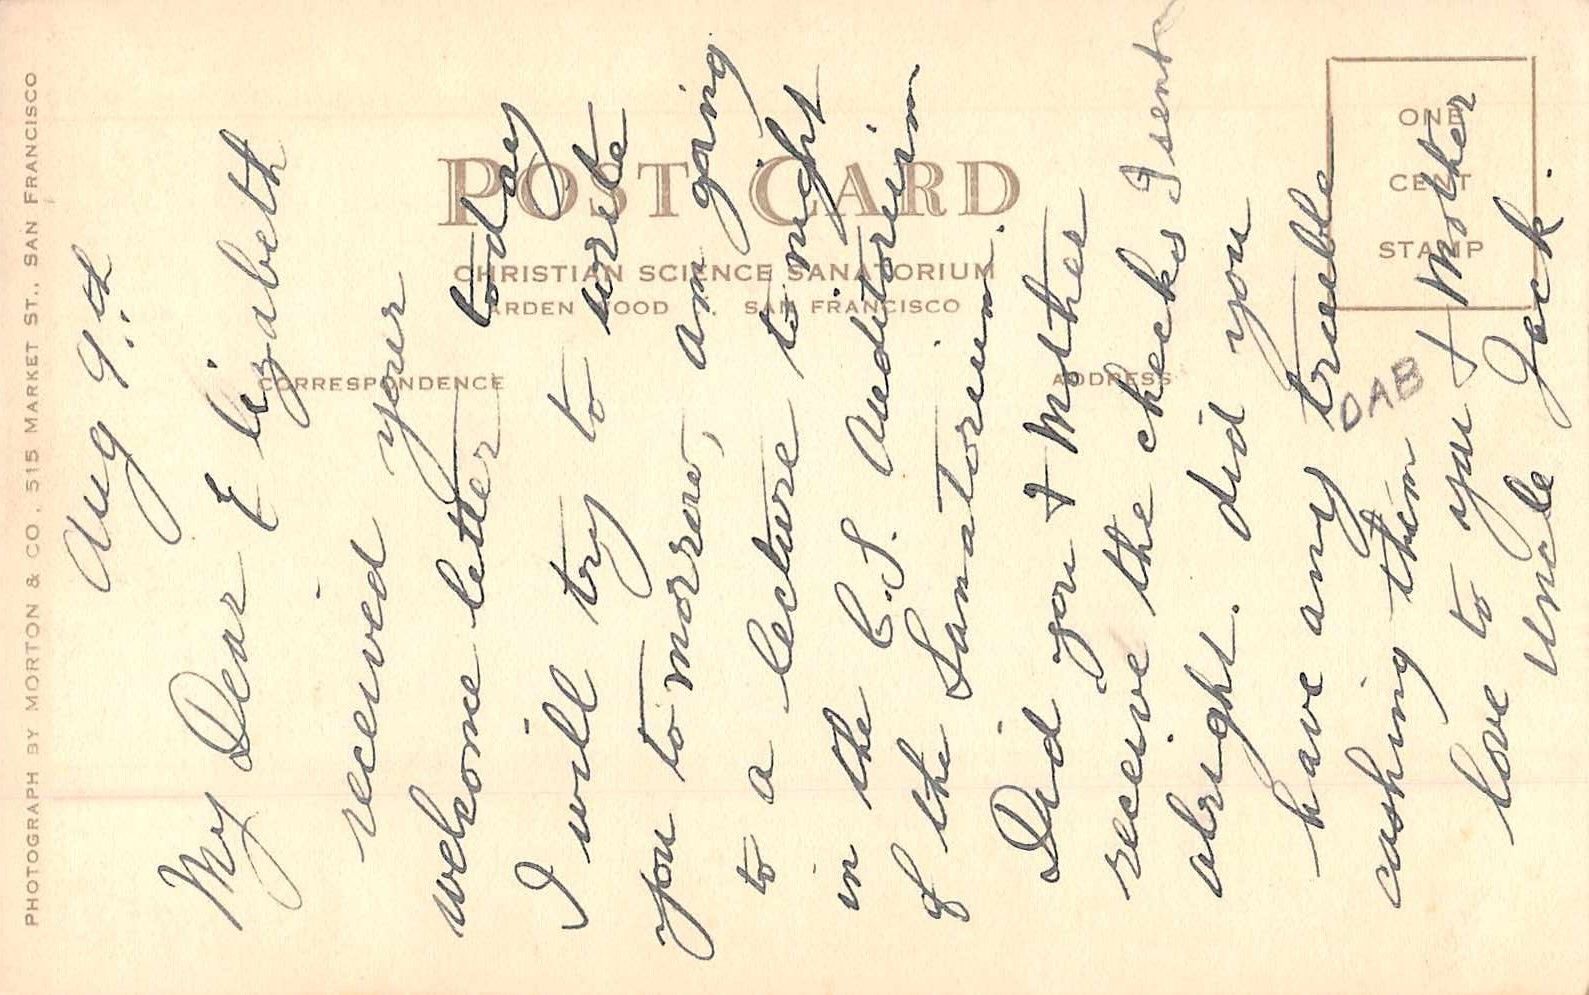 PHOTOGRAPH BY MORTON & CO., 515 MARKET ST., SAN FRANCISCO
POST CARD
CHRISTIAN SCIENCE SANATORIUM
ARDEN WOOD . SAN FRANCISCO
CORRESPONDENCE
ADDRESS
ONE
CENT
STAMP
Aug 9th
My Dear Elizabeth
received your
welcome letter today
I will try to write
you tomorrow, am going
to a lecture to night
in the C.S. Auditorium
of the Sanatorium.
Did you & Mother
receive the checks I sent
alright. did you
have any trouble
cashing them
love to you & Mother
Uncle Jack.
OAB